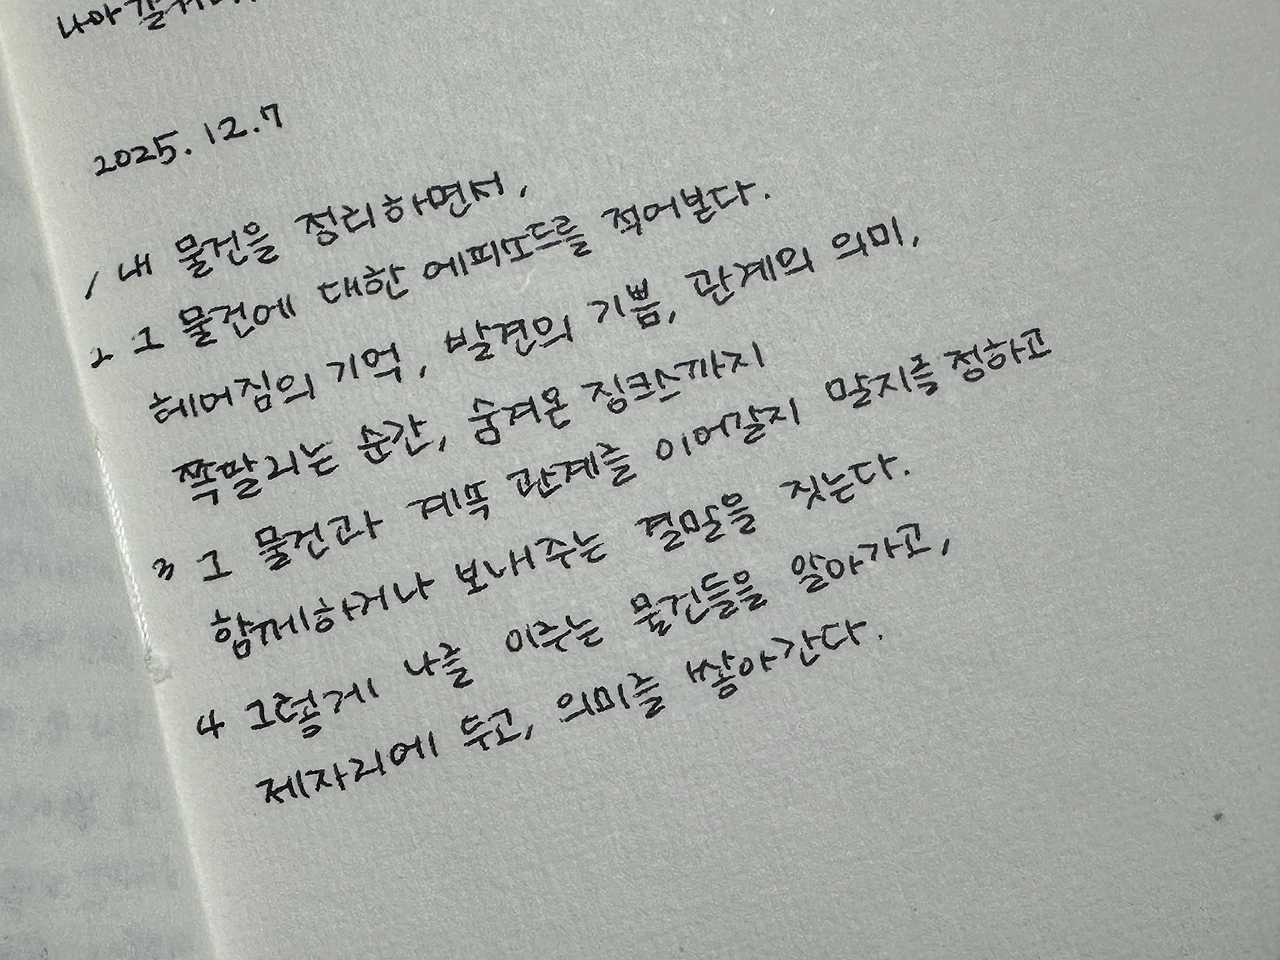 나아갈
2025. 12. 7
1 내 물건을 정리하면서,
2 그 물건에 대한 에피소드를 적어본다.
헤어짐의 기억, 발견의 기쁨, 관계의 의미,
쪽팔리는 순간, 숨겨온 징크스까지
3 그 물건과 계속 관계를 이어갈지 말지를 정하고
함께하거나 보내주는 결말을 짓는다.
4 그렇게 나를 이루는 물건들을 알아가고,
제자리에 두고, 의미를 쌓아간다.